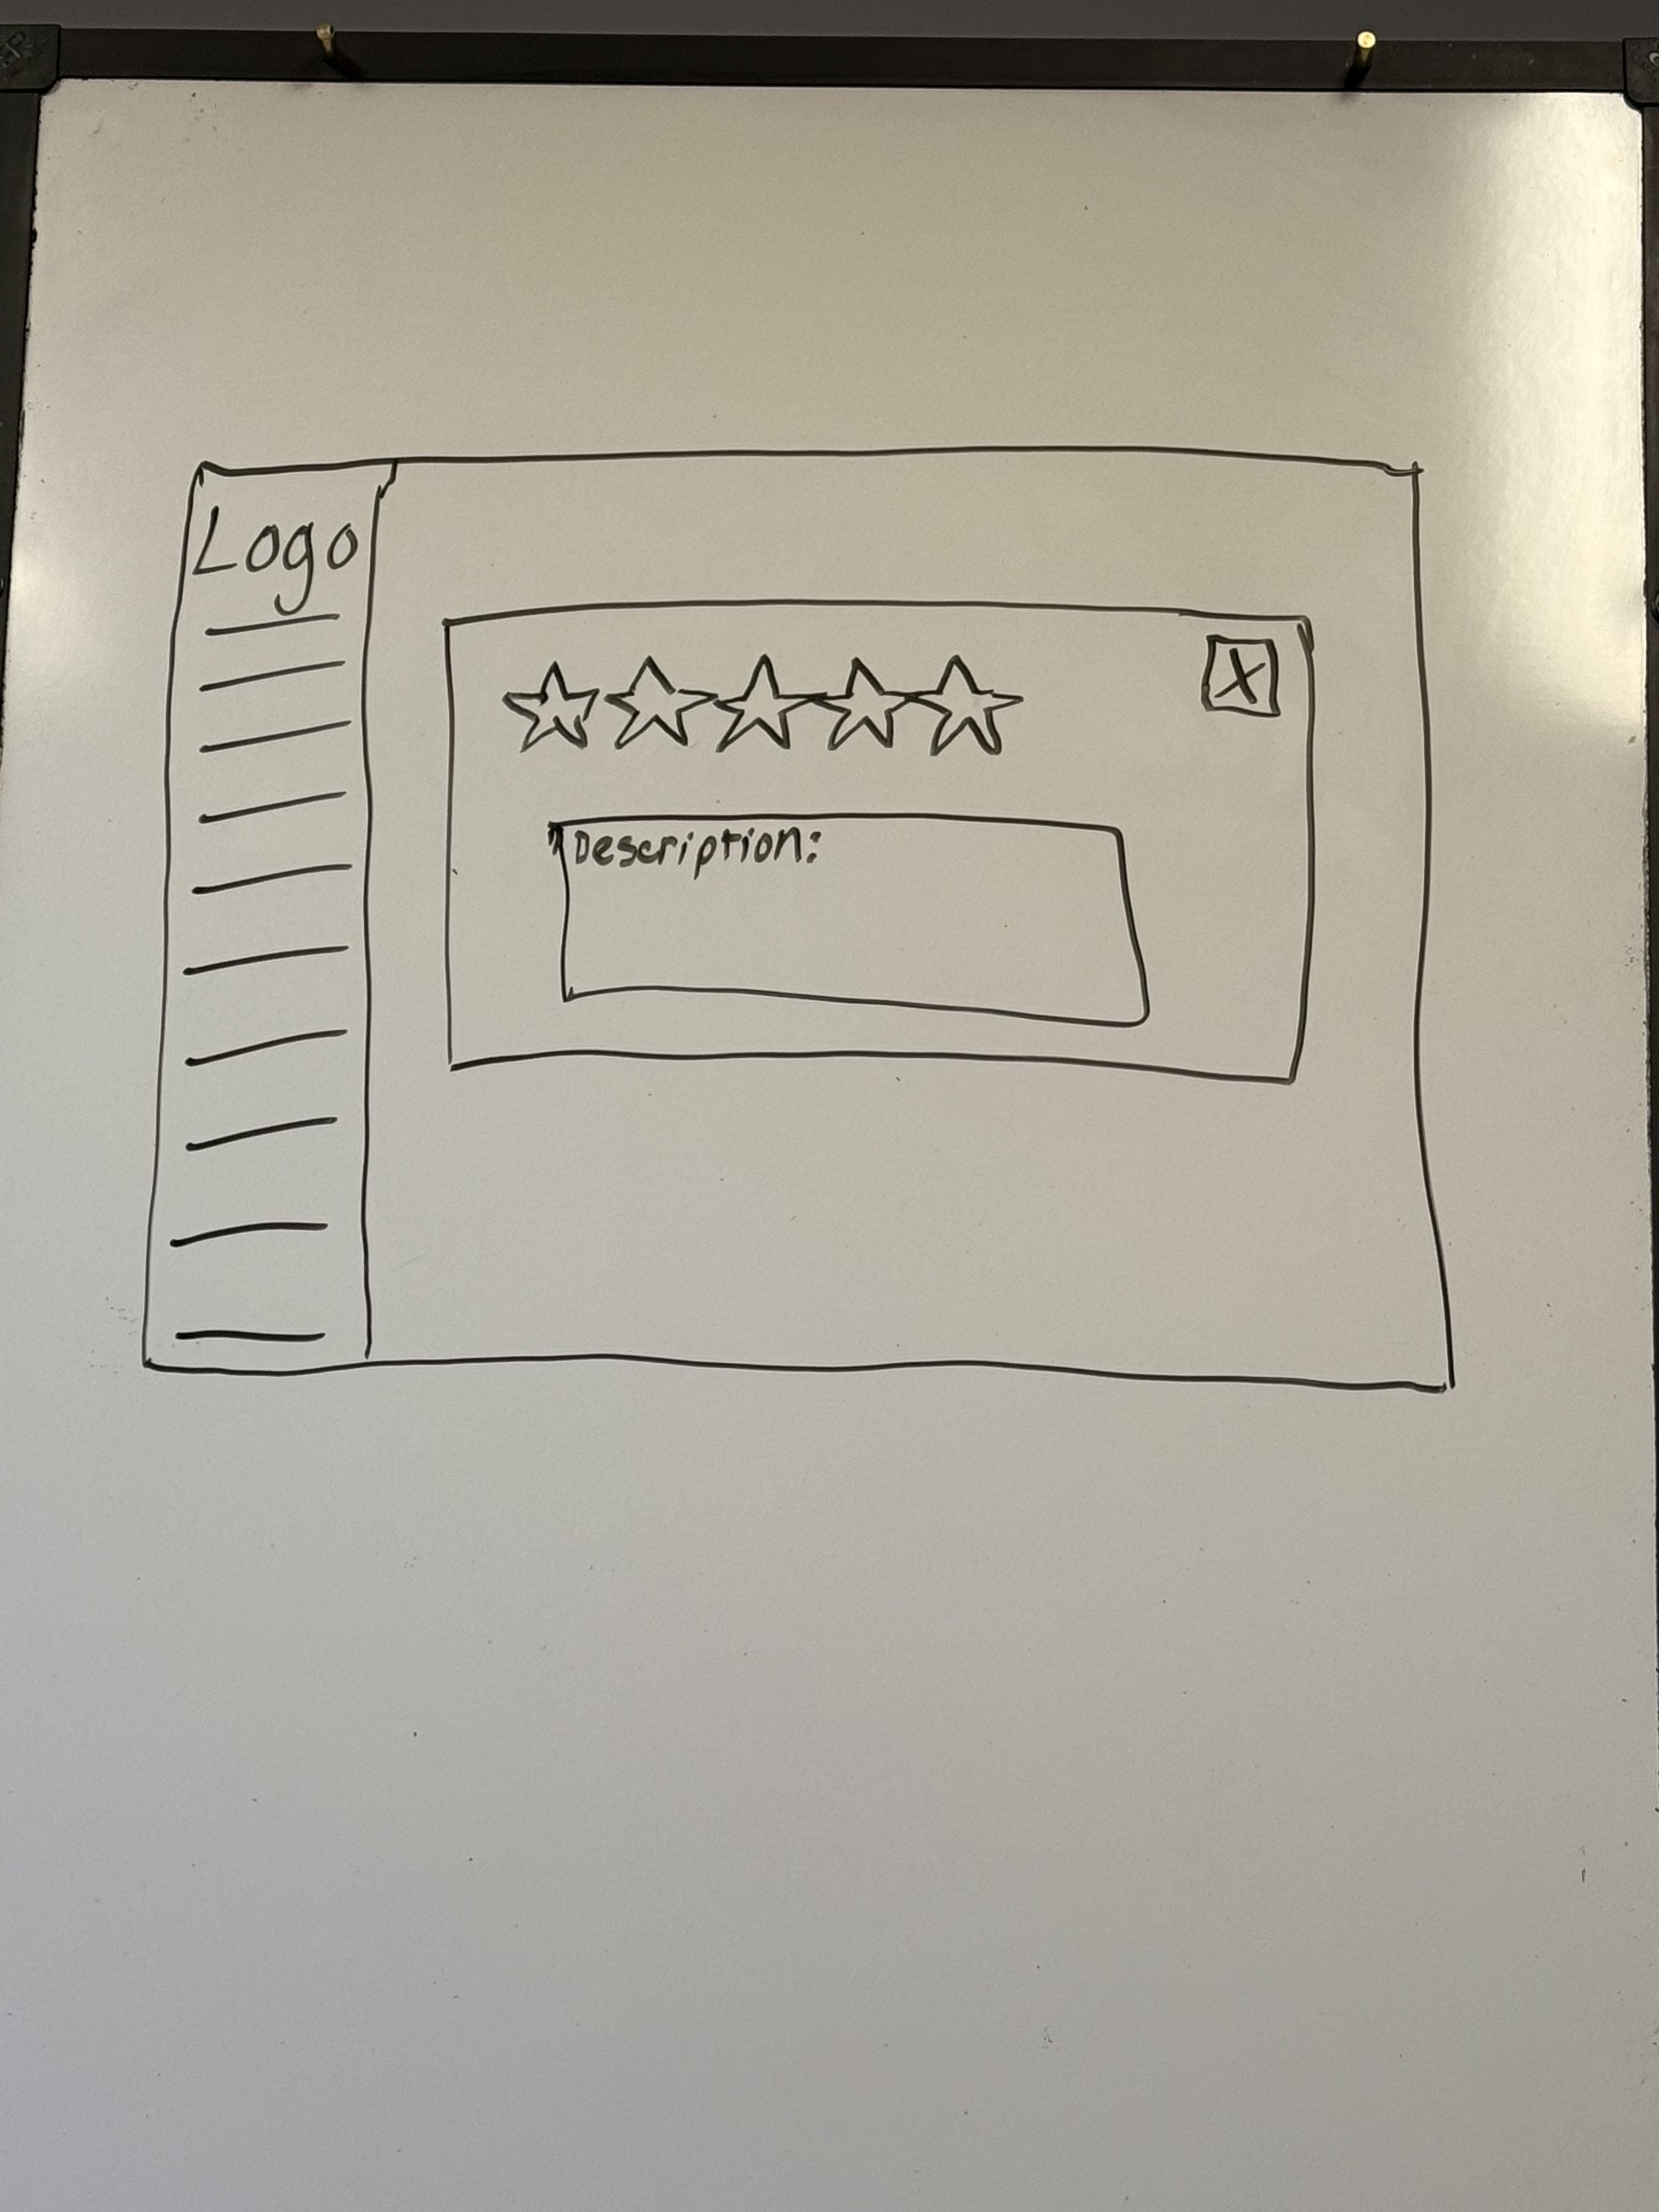 Logo
X
Description: